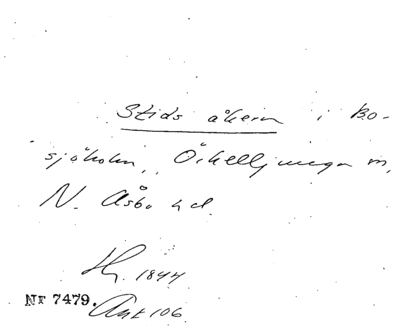 Stids åkern i Bo-
sjöholm, Örkelljunga m,
N. Åsbo hd.
1844
Nr 7479. Ant 106